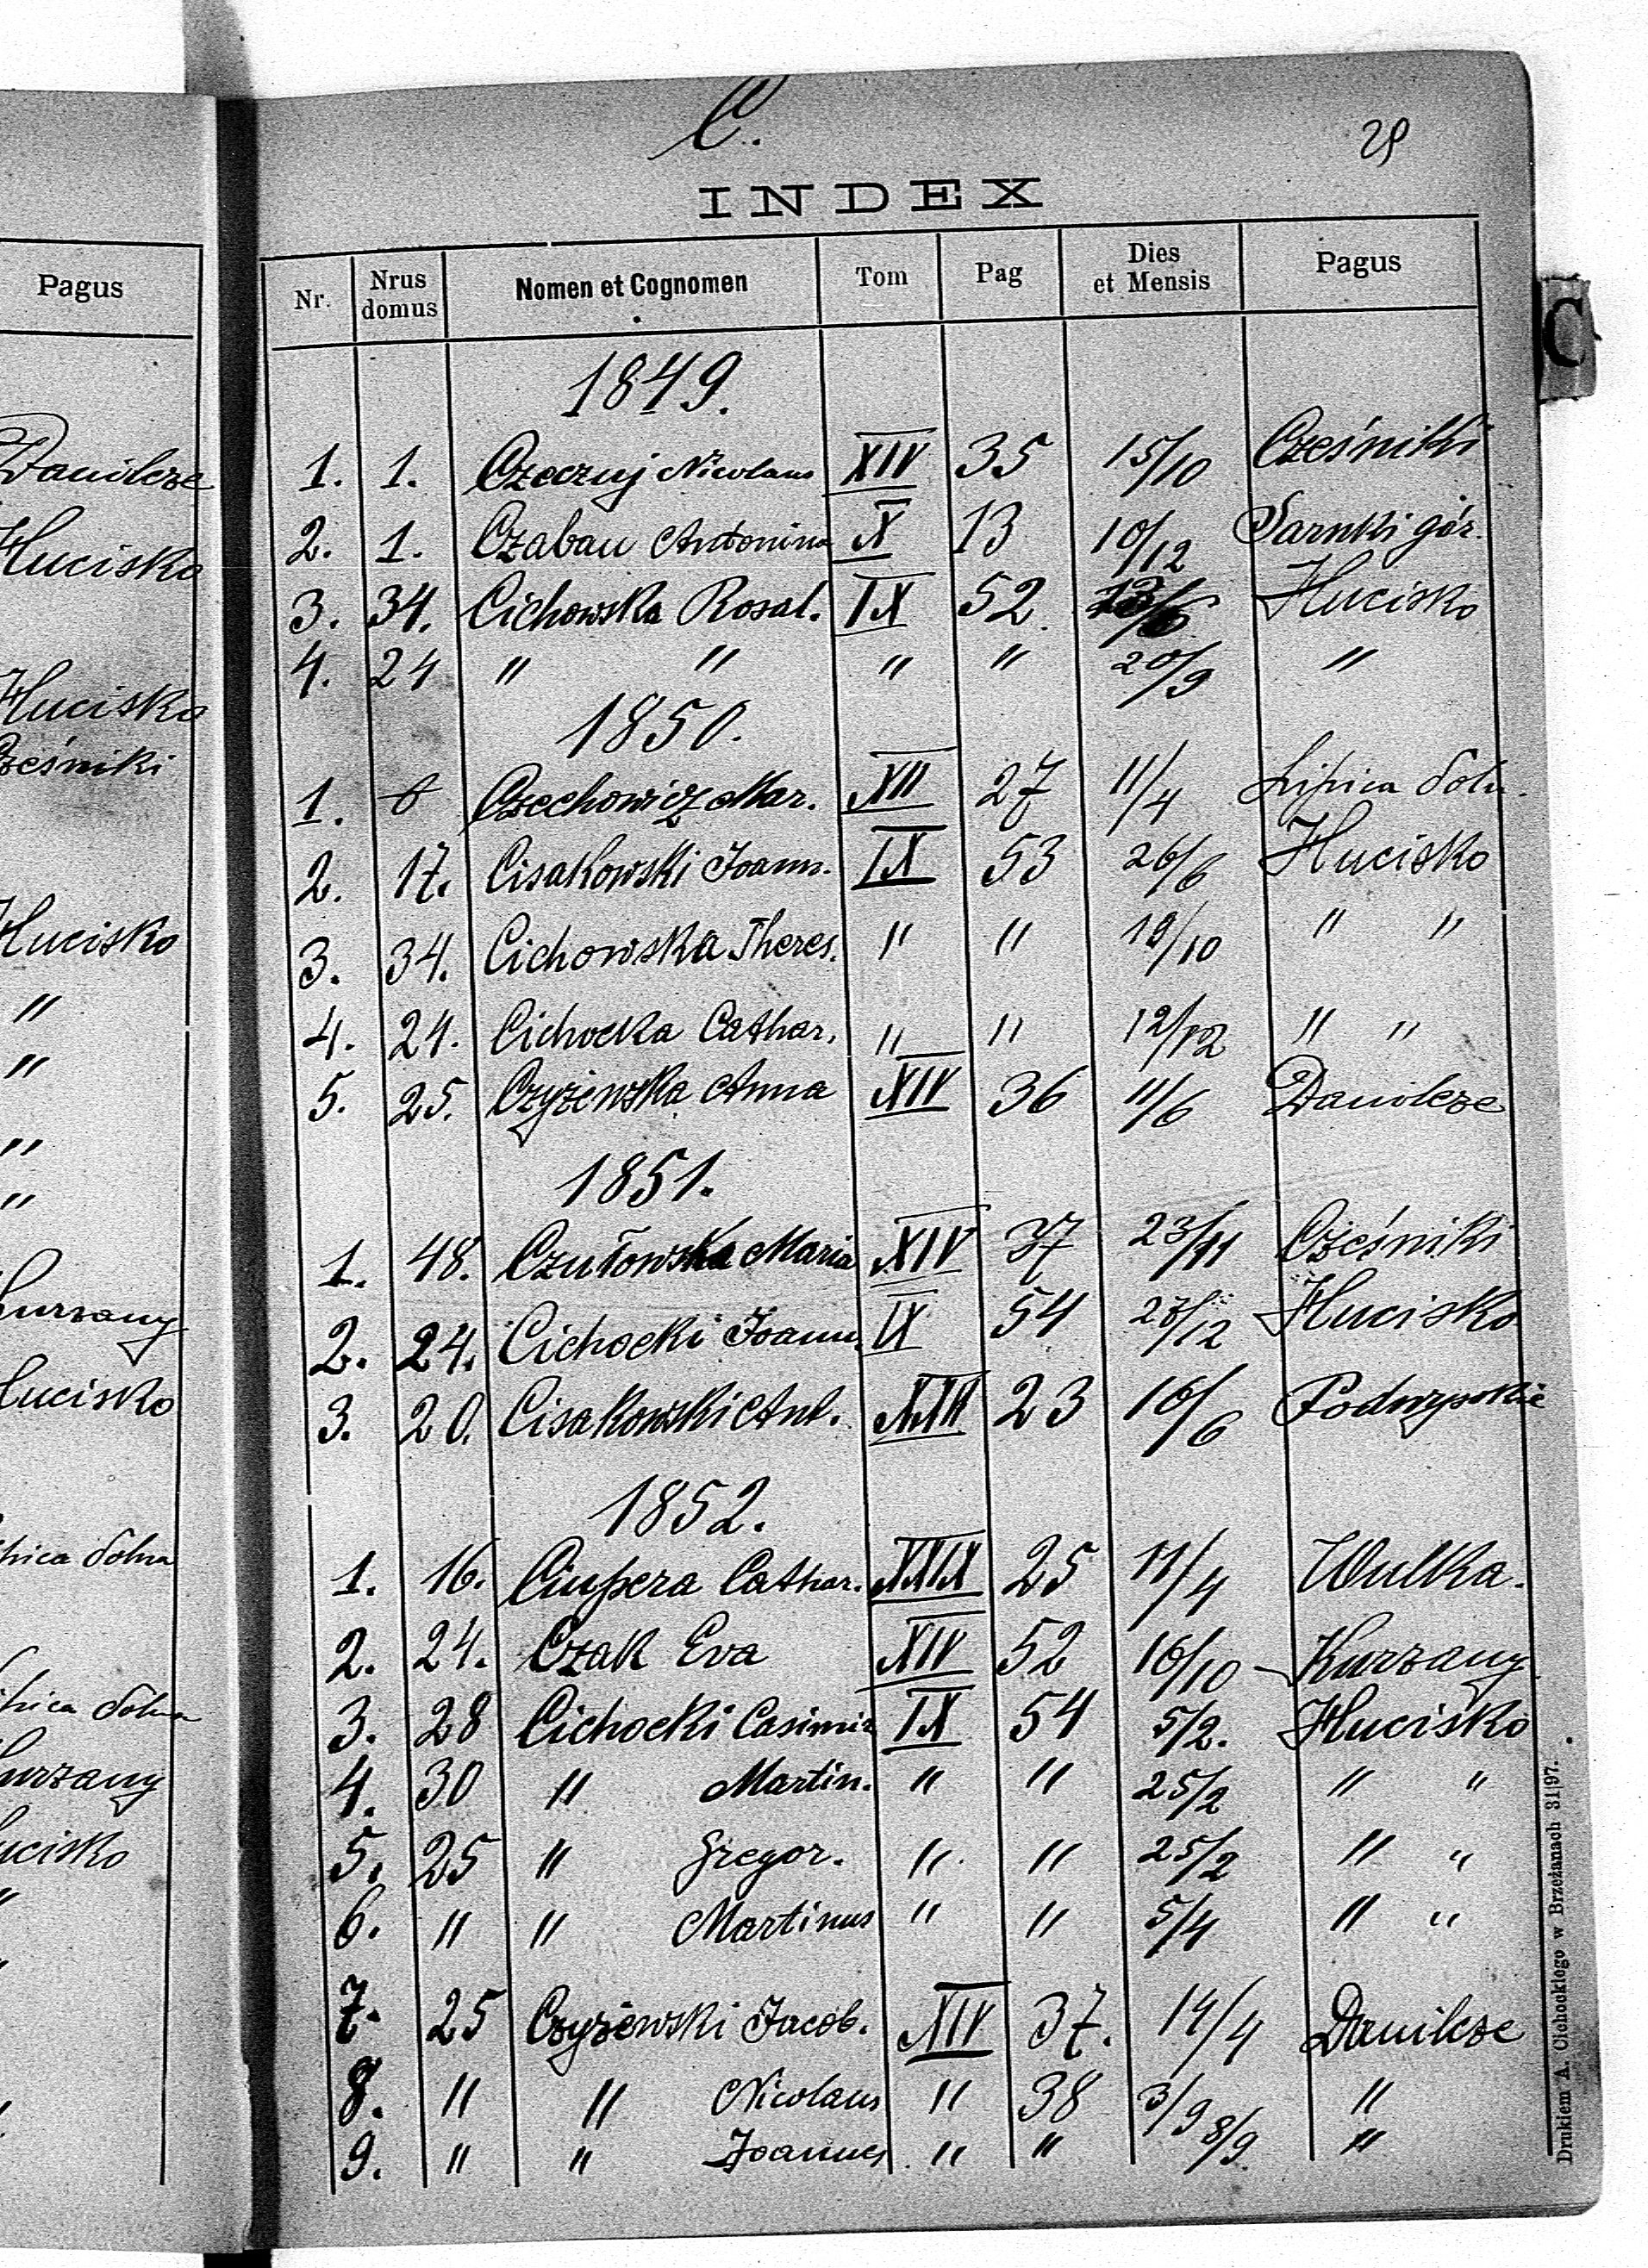 Pagus
Danilcze
Hucisko
Hucisko
Cześniki
Hucisko
"
"
"
"
Kurzany
Hucisko
Lipica dolna
Lipica dolna
Kurzany
Hucisko
C.
29
INDEX
Nr. Nrus domus Nomen et Cognomen Tom Pag Dies et Mensis Pagus
1849.
1. 1. Czeczuj Nicolaus XIV 35 15/10 Cześniki
2. 1. Czaban Antonina X 13 10/12 Sarnki gór.
3. 34. Cichowska Rosal. IX 52. Hucisko
4. 24 " " " " 20/9 "
1850.
1. Czechowicz Mar. XII 27 11/4 Lipica doln.
2. 17. Cisakowski Joann. IX 53 26/6 Hucisko
3. 34. Cichowska Theres. " " 19/10 " "
4. 24. Cichocka Cathar. " " 12/12 " "
5. 25. Czyżewska Anna XIV 36 11/6 Danilcze
1851.
1. 48. Czułowska Maria XIV 37 23/11 Cześniki
2. 24. Cichocki Joann. IX 54 27/12 Hucisko
3. 20. Cisakowski Ant. 23 16/6 Podwysokie
1852.
1. 16. Ciupera Cathar. XXIX 25 11/4 Wulka.
2. 24. Czak Eva XIV 52 16/10 Kurzany
3. 28 Cichocki Casimir IX 54 5/2. Hucisko
4. 30 " Martin. " " 25/2 " "
5. 25 " Gregor. " " 25/2 " "
6. " " Martinus " " 5/4 " "
7. 25 Czyżewski Jacob. XIV 37. 14/4 Danilcze
8. " " Nicolaus " 38 3/9 "
9. " " Joannes " " 8/9. "
C
Drukiem A. Cichockiego w Brzeżanach 31|97.